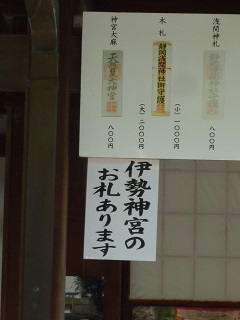 浅間神札
八〇〇円
木札
静岡浅間神社御守護
(小)一〇〇〇円
(大)二〇〇〇円
神宮大麻
天照皇大神宮
八〇〇円
伊勢神宮の
お札あります